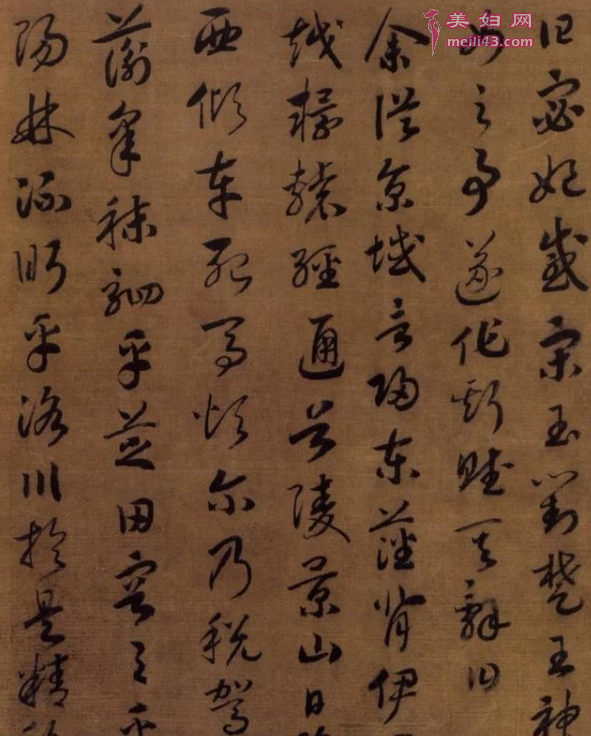 美妇网
meili43.com
曰宓妃感宋玉對楚王神
女之事遂作斯賦其辭曰
余從京域言歸東藩背伊
越轘轅經通谷陵景山日
西傾車殆馬煩尔乃税駕
蘅皋秣駟乎芝田容与乎
陽林流眄乎洛川於是精